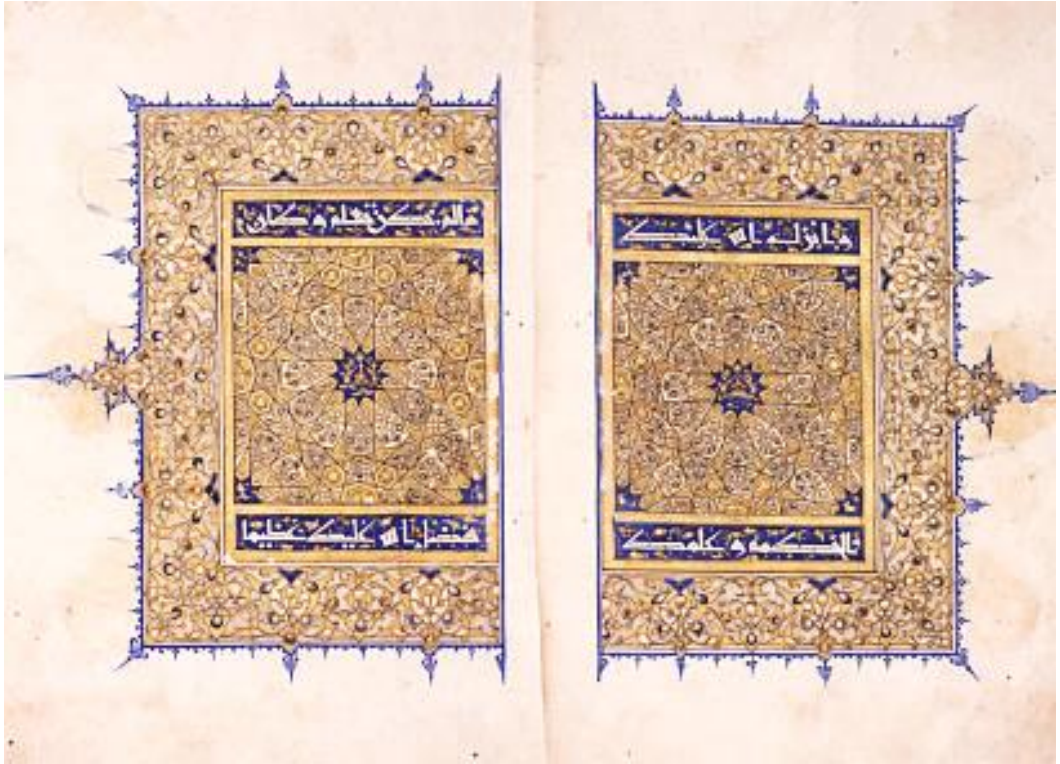 وانزل الله عليك
والحكمة وعلمك
ما لم تكن تعلم وكان
فضل الله عليك عظيما